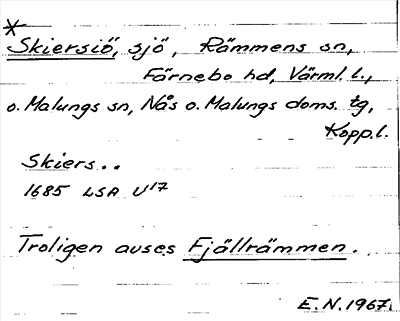 *
Skiersiö, sjö, Rämmens sn,
Färnebo hd, Värml. l.,
o. Malungs sn, Nås o. Malungs doms. tg,
Kopp.l.
Skiers..
1685 LSA U17
Troligen avses Fjällrämmen.
E.N.1967.